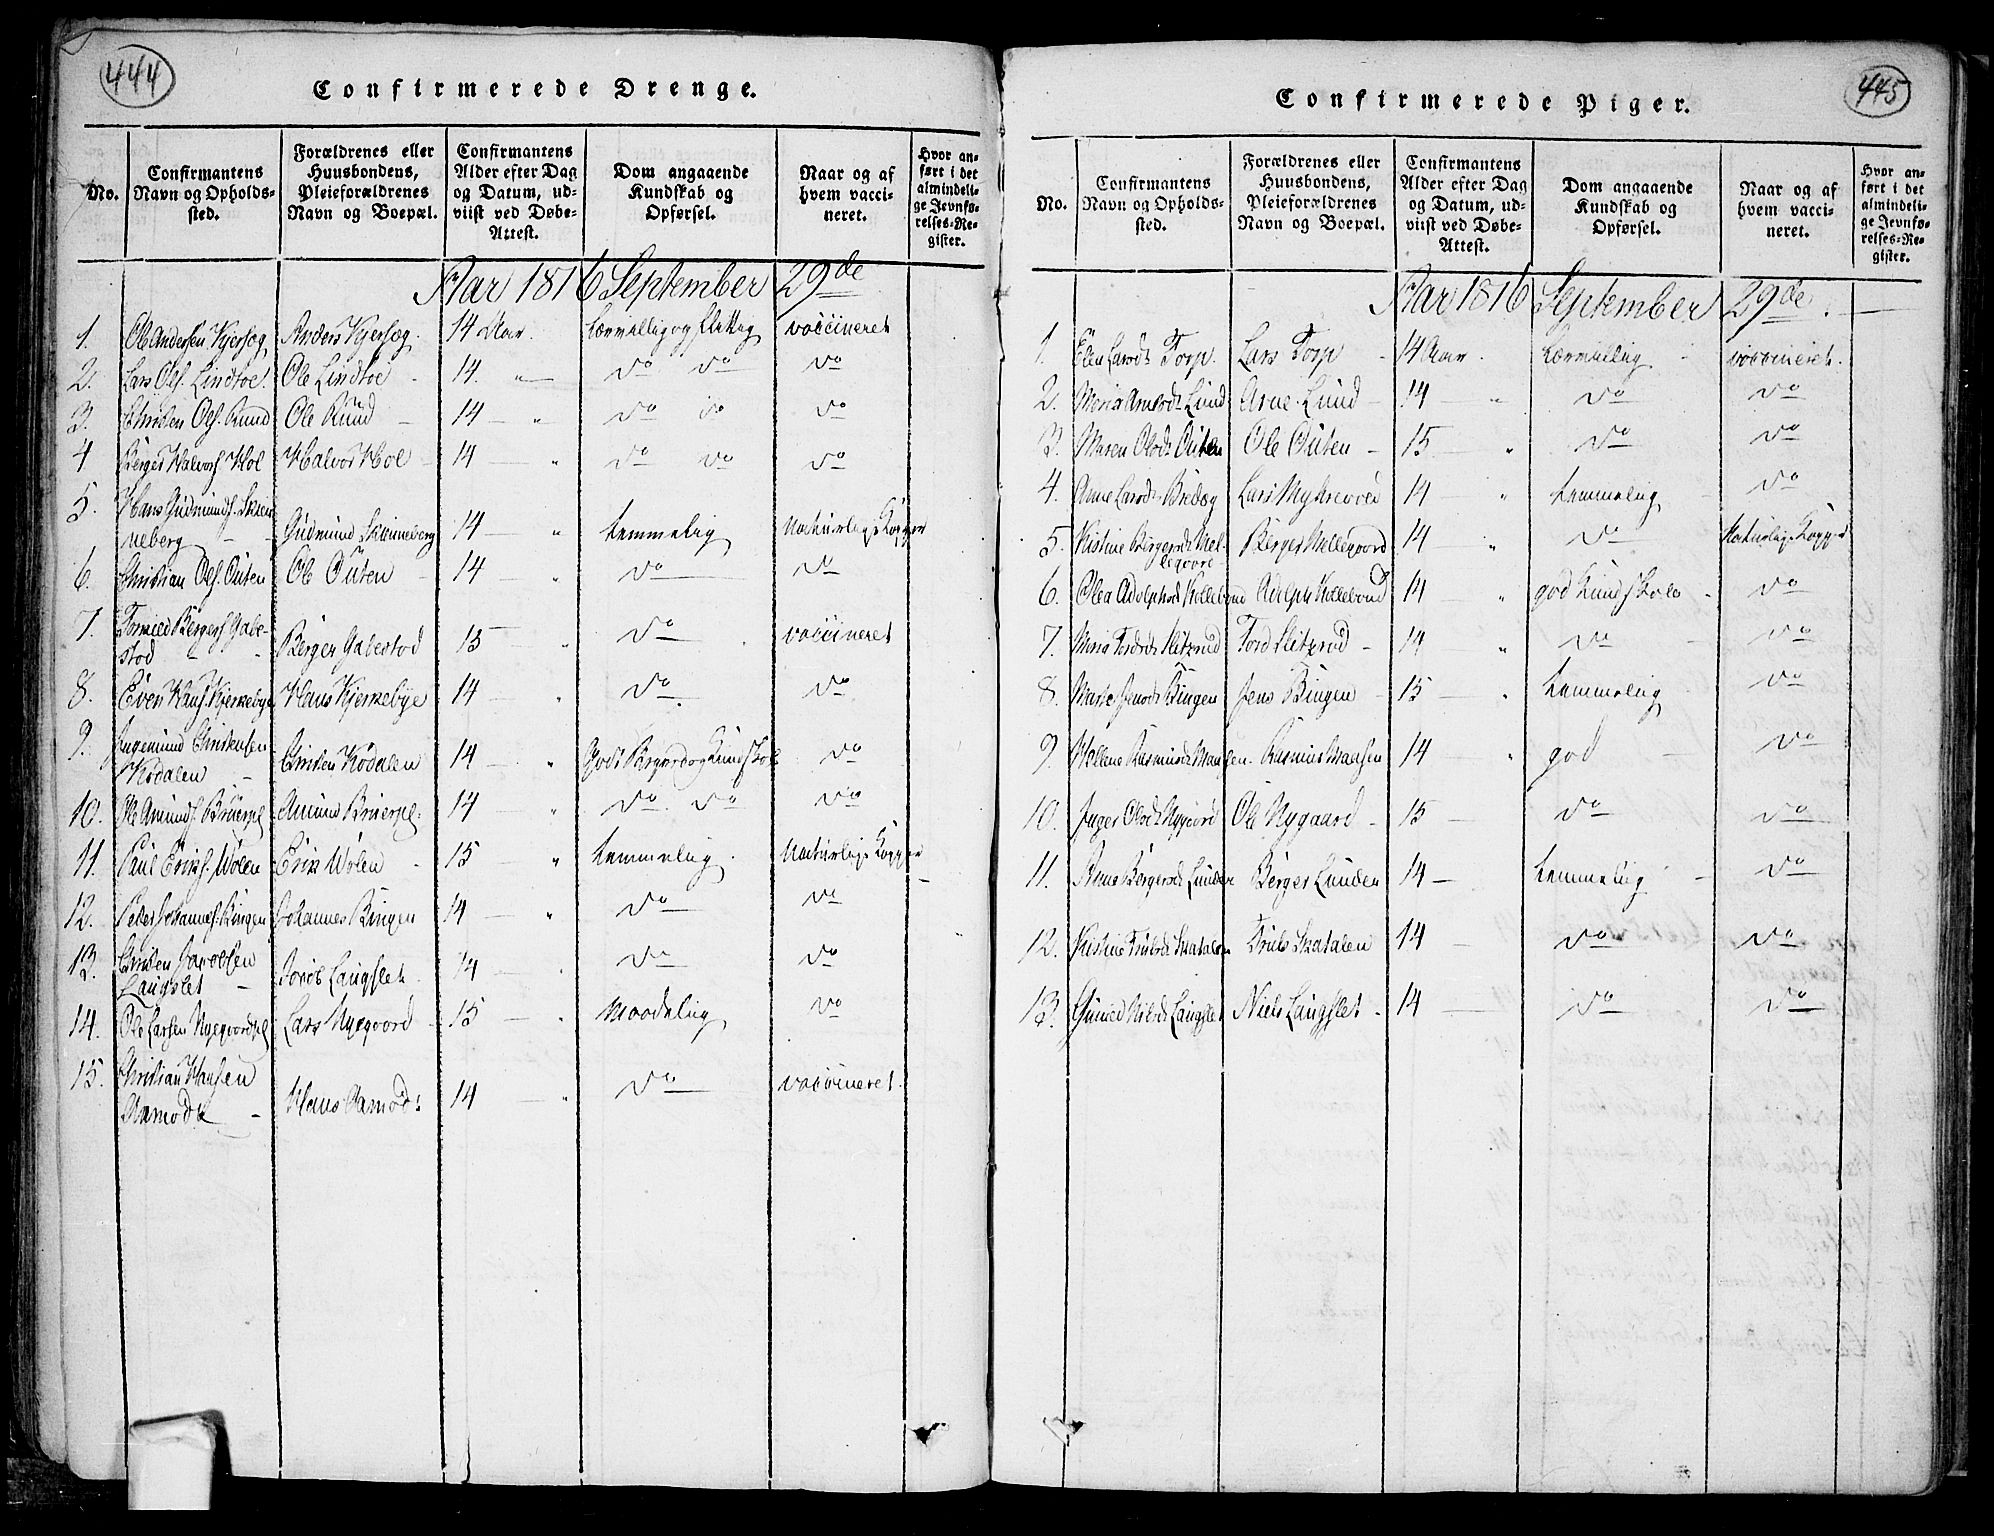 444
Confirmerede Drenge.
No.
Confirmantens Navn og Opholds-sted.
Forældrenes eller Huusbondens, Pleieforældrenes Navn og Boepæl.
Confirmantens Alder efter Dag og Datum, ud-viist ved Døbe-Attest.
Dom angaaende Kundskab og Opførsel.
Naar og af hvem vacci-neret.
Hvor an-ført i det almindeli-ge Jevnfø-relses-Re-gister.
Aar 1816 September 29de
1. Ole Andersen Kjersøg Anders Kjersøg. 14 Aar. Lærvillig og flittig vaccineret
2. Lars Ols. Lindtoe. Ole Lindtoe 14. " do do do
3. Christen Ols. Rund Ole Rund 14 " do do do
4 Berger Halvors. Hol Halvor Hol 14 " do do do
5. Hans Gudmunds. Skien-
neberg Gudmund Skienneberg 14 " temmelig Naturlige Kopper
6. Christian Ols. Outen Ole Outen 14 " do do
7. Bergers. Gabe-
stod Berger Gabestod 15 " do vaccineret
8. Even Hans. Kjerkebye Hans Kjerkebye 14 " do do
9. Ingemund Christensen
Kodalen Christen Kodalen 14 " Godt Begreb og Kundskab do
10. Ole Amunds. Bruerpl. Amund Bruerpl. 14 " do do do
11. Paul Eriks. Wølen Erik Wølen 15 " temmelig. Naturlige Kopper
12. Peder Johannes. Bingen Johannes Bingen 14 " do do
13. Christen Jacobsen
Langslet Langslet 14 " do do
14. Ole Larsen Nyegaardpl Lars Nyegaard 15 " Maadelig do
15. Christian Hansen
Aamodt Hans Aamodt 14 " do vaccineret.
445
Confirmerede Piger.
No.
Confirmantens Navn og Opholds-sted.
Forældrenes eller Huusbondens, Pleieforældrenes Navn og Boepæl.
Confirmantens Alder efter Dag og Datum, ud-viist ved Døbe-Attest.
Dom angaaende Kundskab og Opførsel.
Naar og af hvem vacci-neret.
Hvor an-ført i det almindeli-ge Jevnfø-relses-Re-gister.
Aar 1816 September 29de.
1. Elen Larsdt Torp. Lars Torp 14 Aar. Lærvillig vaccineret.
2. Maria Arnesdt Lund Arne Lund 14 " do do
3. Maren Olsdt Outen Ole Outen 15 " do do
4. Anne Larsdt Lars 14 " temmelig do
5. Kistine Bergersdt Mel-
legaard Berger Mellegaard 14 " do Naturlige Kopper
6. Olea Adolphsdt Kollebund Adolph Kollebund 14 " god Kundskab do
7. Maria Tordsdt Slitzrud Tord Slitzrud 14 " do do
8. Marte Jensdt Bingen Jens Bingen 15 " temmelig do
9. Hellene Rasmusdt Rasmus 14 " god do
10. Inger Olsdt Nygaard Ole Nygaard 15 do do
11. Anne Bergersdt Lunden Berger Lunden 14 temmelig do
12. Kistine Trulsdt Skatalen Truls Skatalen 14 do do
13. Nielsdt Langslet Niels Langslet 14 do do